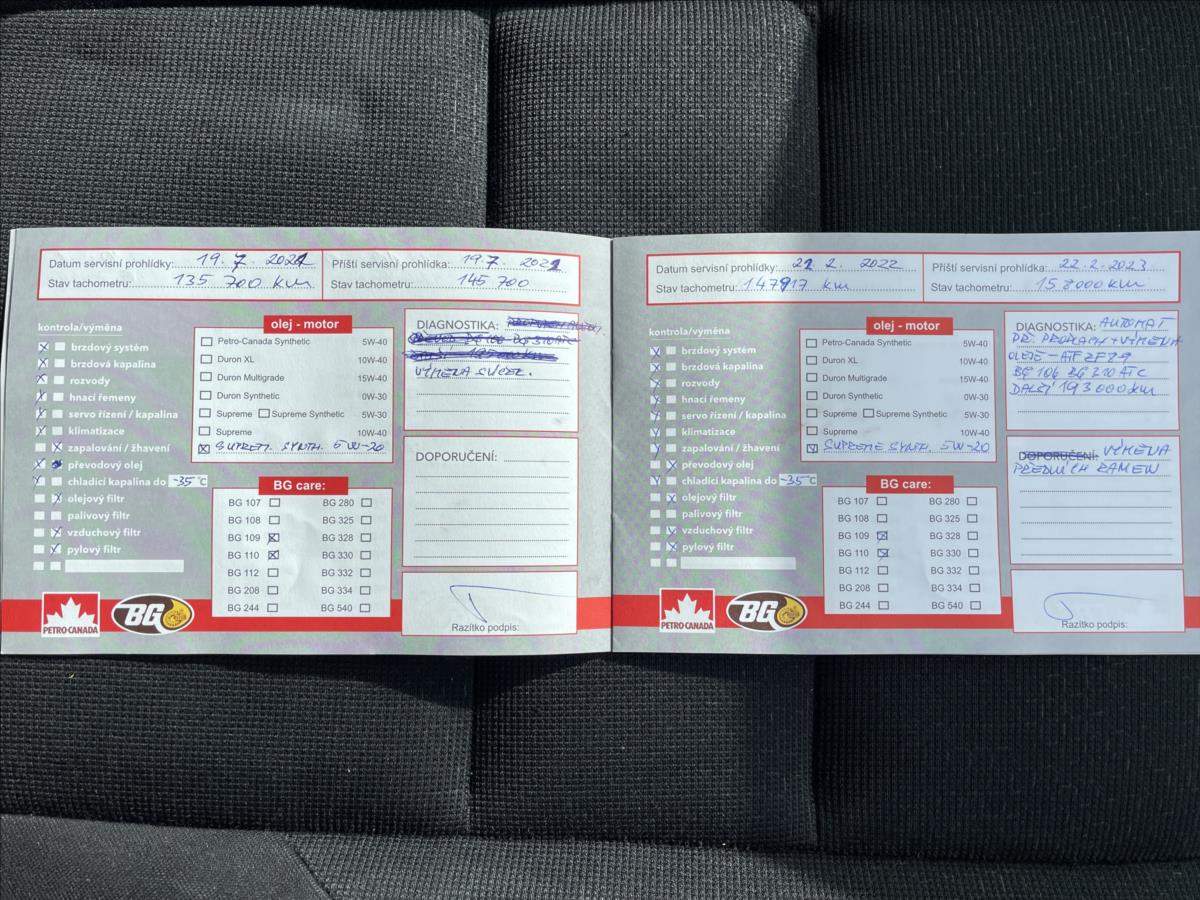 Datum servisní prohlídky: 19. 7. 2021
Příští servisní prohlídka: 19.7. 2021
Stav tachometru: 135 700 km
Stav tachometru: 145 700
kontrola/výměna
brzdový systém
brzdová kapalina
rozvody
hnací řemeny
servo řízení / kapalina
klimatizace
zapalování / žhavení
převodový olej
chladící kapalina do -35 °C
olejový filtr
palivový filtr
vzduchový filtr
pylový filtr
olej - motor
Petro-Canada Synthetic 5W-40
Duron XL 10W-40
Duron Multigrade 15W-40
Duron Synthetic 0W-30
Supreme Supreme Synthetic 5W-30
Supreme 10W-40
SUPREM. SYNTH. 5W-20
BG care:
BG 107 BG 280
BG 108 BG 325
BG 109 BG 328
BG 110 BG 330
BG 112 BG 332
BG 208 BG 334
BG 244 BG 540
DIAGNOSTIKA:
VÝMĚNA SVÍČEK.
DOPORUČENÍ:
Razítko podpis:
PETRO-CANADA
BG
Datum servisní prohlídky: 22 2. 2022
Příští servisní prohlídka: 22.2.2023
Stav tachometru: 147917 km
Stav tachometru: 158000 km
kontrola/výměna
brzdový systém
brzdová kapalina
rozvody
hnací řemeny
servo řízení / kapalina
klimatizace
zapalování / žhavení
převodový olej
chladící kapalina do -35 °C
olejový filtr
palivový filtr
vzduchový filtr
pylový filtr
olej - motor
Petro-Canada Synthetic 5W-40
Duron XL 10W-40
Duron Multigrade 15W-40
Duron Synthetic 0W-30
Supreme Supreme Synthetic 5W-30
Supreme 10W-40
SUPREME SYNTH. 5W-20
BG care:
BG 107 BG 280
BG 108 BG 325
BG 109 BG 328
BG 110 BG 330
BG 112 BG 332
BG 208 BG 334
BG 244 BG 540
DIAGNOSTIKA: AUTOMAT
PŘ. PROPLACH + VÝMĚNA
OLEJE - ATF ZF
BG 106 BG 310 ATC
DALŠÍ 193 000 km
DOPORUČENÍ: VÝMĚNA
PŘEDNÍCH RAMEN
Razítko podpis:
PETRO-CANADA
BG